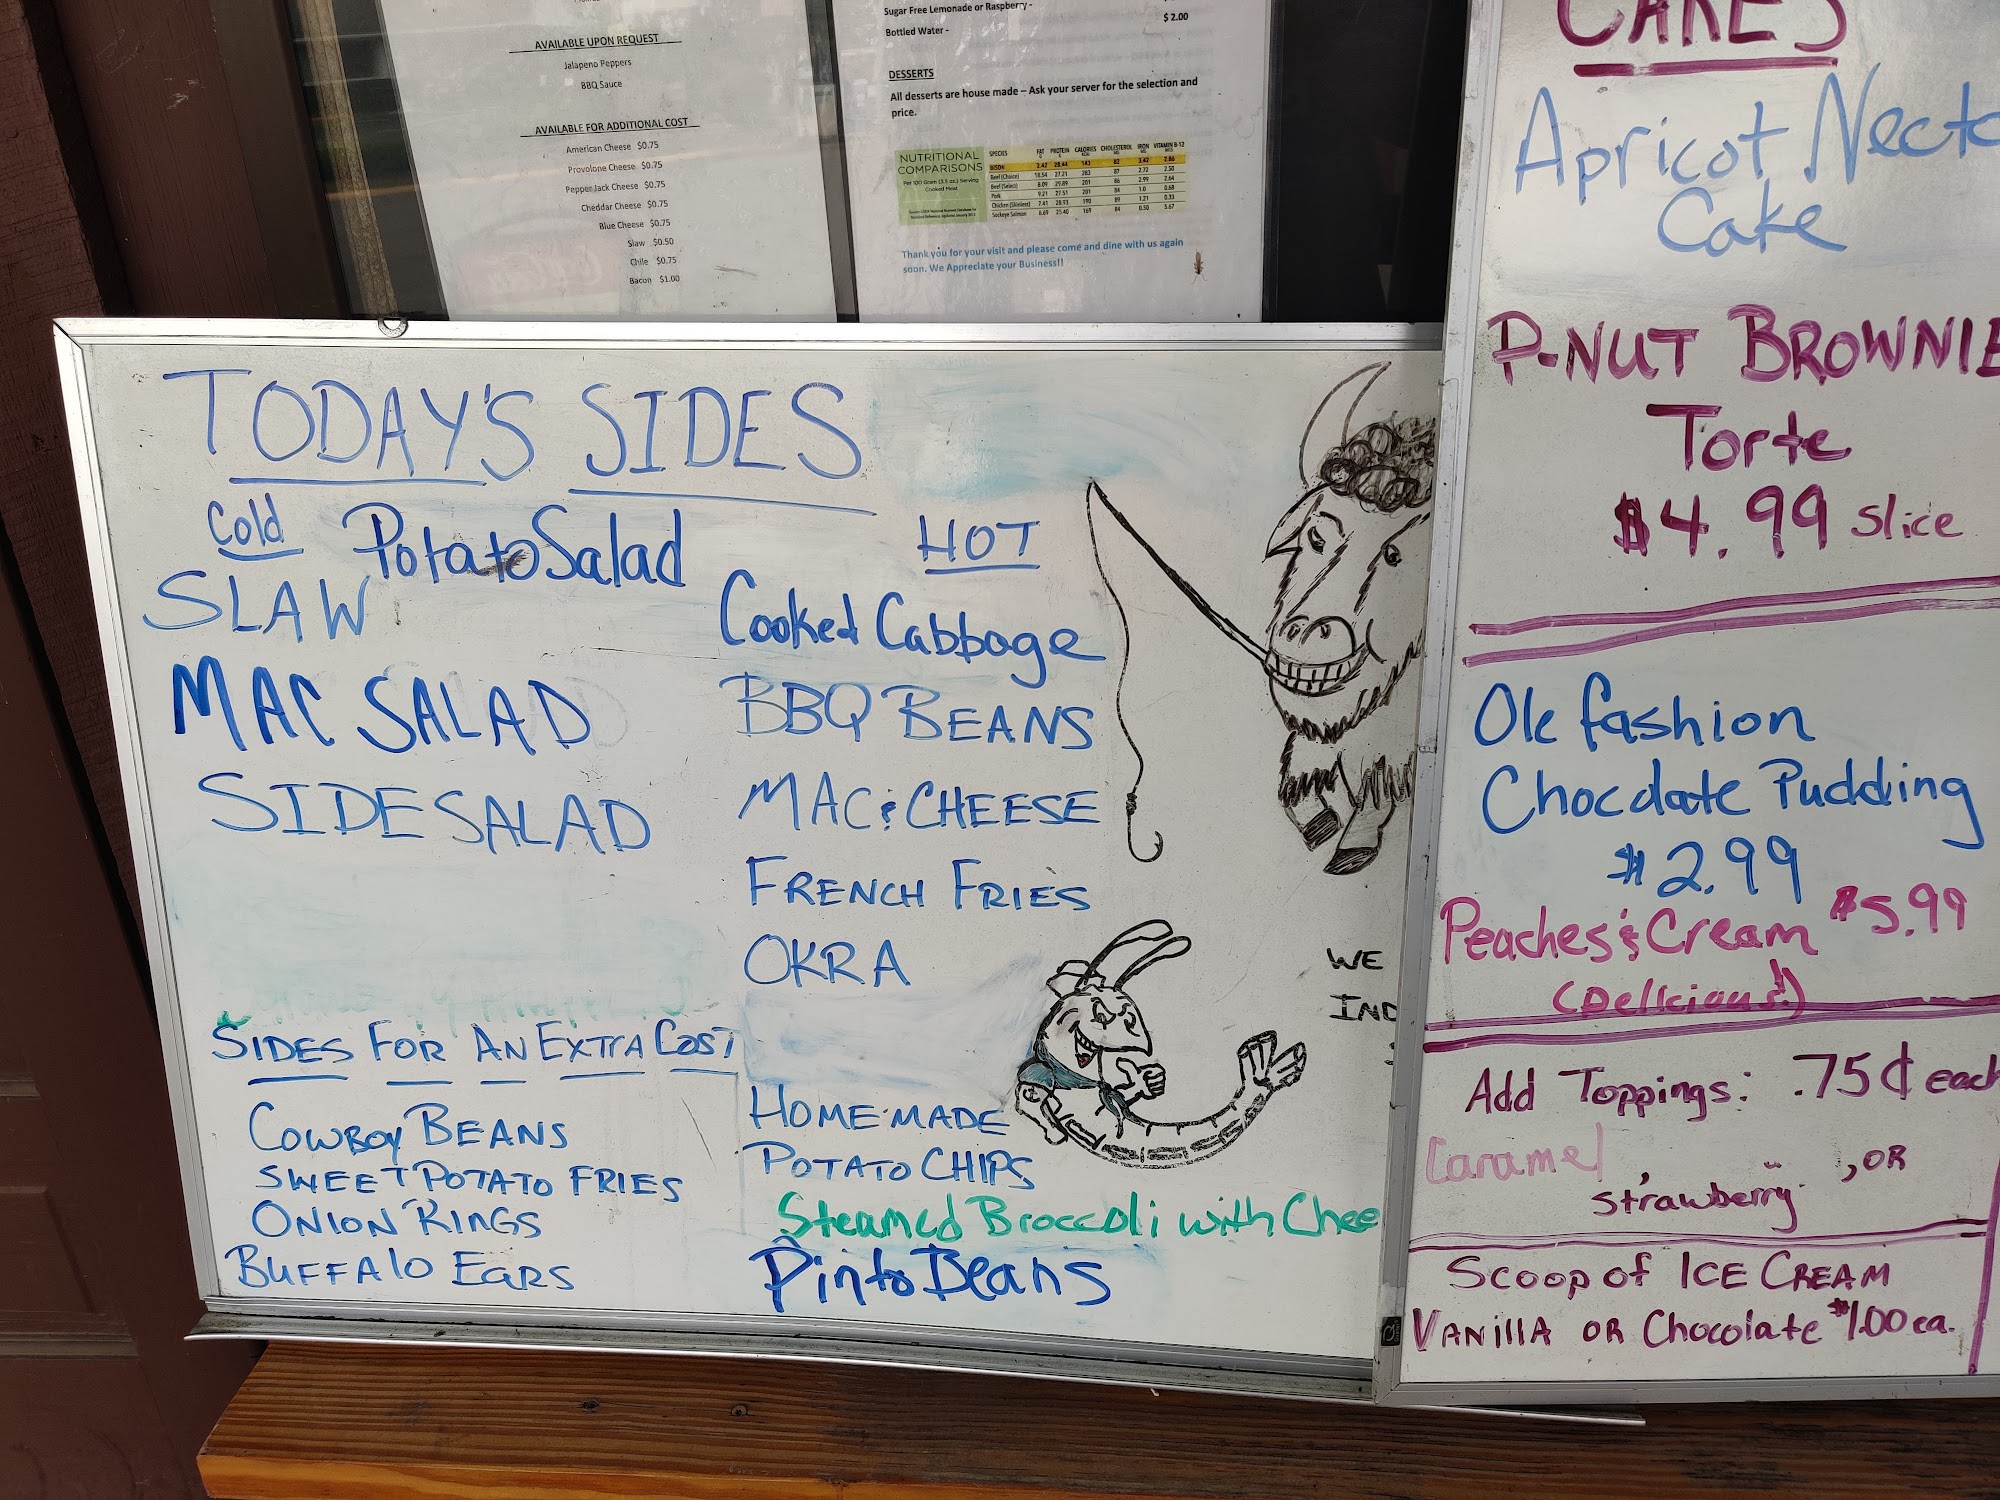 AVAILABLE UPON REQUEST
Jalapeno Peppers
BBQ Sauce
AVAILABLE FOR ADDITIONAL COST
American Cheese $0.75
Provolone Cheese $0.75
Pepper Jack Cheese $0.75
Cheddar Cheese $0.75
Blue Cheese $0.75
Slaw $0.50
Chile $0.75
Bacon $1.00
Sugar Free Lemonade or Raspberry -
Bottled Water - $2.00
DESSERTS
All desserts are house made – Ask your server for the selection and
price.
NUTRITIONAL
COMPARISONS
Per 100 Gram (3.5 oz.) Serving
Cooked Meat
SPECIES FAT PROTEIN CALORIES CHOLESTEROL IRON VITAMIN B-12
BISON 2.42 28.44 143 82 3.42 2.86
Beef (Choice) 18.54 27.21 283 87 2.72 2.50
Beef (Select) 8.09 29.89 201 86 2.99 2.64
Pork 9.21 27.51 201 84 1.0 0.68
Chicken (Skinless) 7.41 28.93 190 89 1.21 0.33
Sockeye Salmon 6.69 25.40 169 84 0.50 5.67
Thank you for your visit and please come and dine with us again
soon. We Appreciate your Business!!
TODAY'S SIDES
Cold
Potato Salad
SLAW
MAC SALAD
SIDE SALAD
HOT
Cooked Cabbage
BBQ BEANS
MAC & CHEESE
FRENCH FRIES
OKRA
SIDES FOR AN EXTRA COST
COWBOY BEANS
SWEET POTATO FRIES
ONION RINGS
BUFFALO EARS
HOME-MADE
POTATO CHIPS
Steamed Broccoli with Chee
Pinto Beans
WE
IND
CAKES
Apricot Necta
Cake
P-NUT BROWNIE
Torte
$4.99 slice
Ole fashion
Chocolate Pudding
$2.99
Peaches & Cream $5.99
(Delicious!)
Add Toppings: .75¢ each
Caramel, strawberry, OR
SCOOP OF ICE CREAM
VANILLA OR Chocolate $1.00 ea.